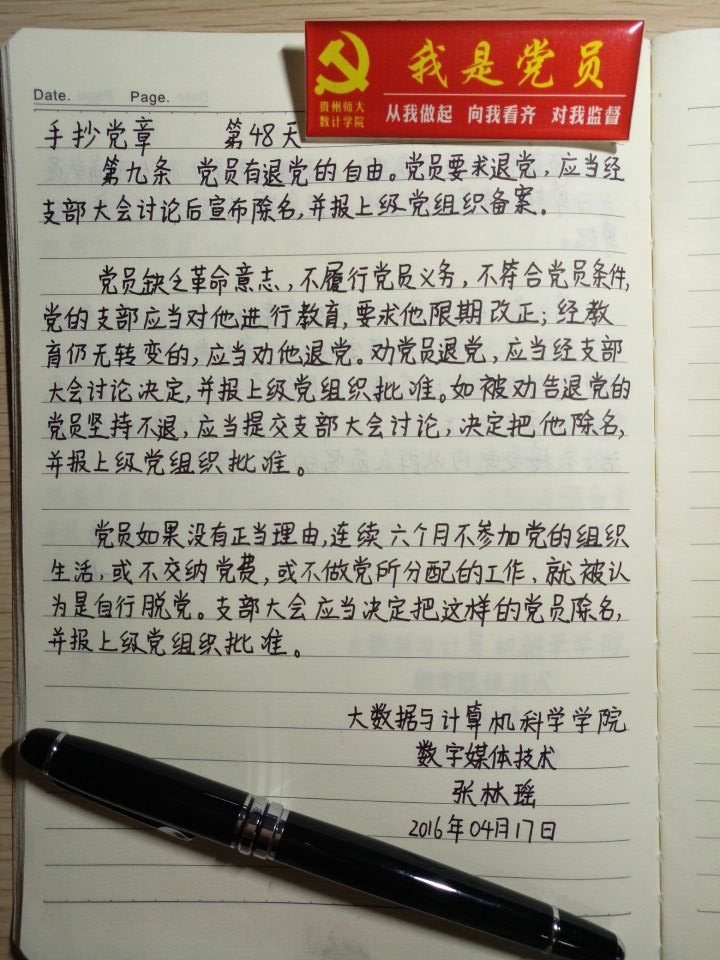 我是党员
贵州师大
数计学院
从我做起 向我看齐 对我监督
Date. Page.
手抄党章 第48天
第九条 党员有退党的自由。党员要求退党,应当经
支部大会讨论后宣布除名,并报上级党组织备案。
党员缺乏革命意志,不履行党员义务,不符合党员条件,
党的支部应当对他进行教育,要求他限期改正;经教
育仍无转变的,应当劝他退党。劝党员退党,应当经支部
大会讨论决定,并报上级党组织批准。如被劝告退党的
党员坚持不退,应当提交支部大会讨论,决定把他除名,
并报上级党组织批准。
党员如果没有正当理由,连续六个月不参加党的组织
生活,或不交纳党费,或不做党所分配的工作、就被认
为是自行脱党。支部大会应当决定把这样的党员除名,
并报上级党组织批准。
大数据与计算机科学学院
数字媒体技术
张林瑶
2016年04月17日